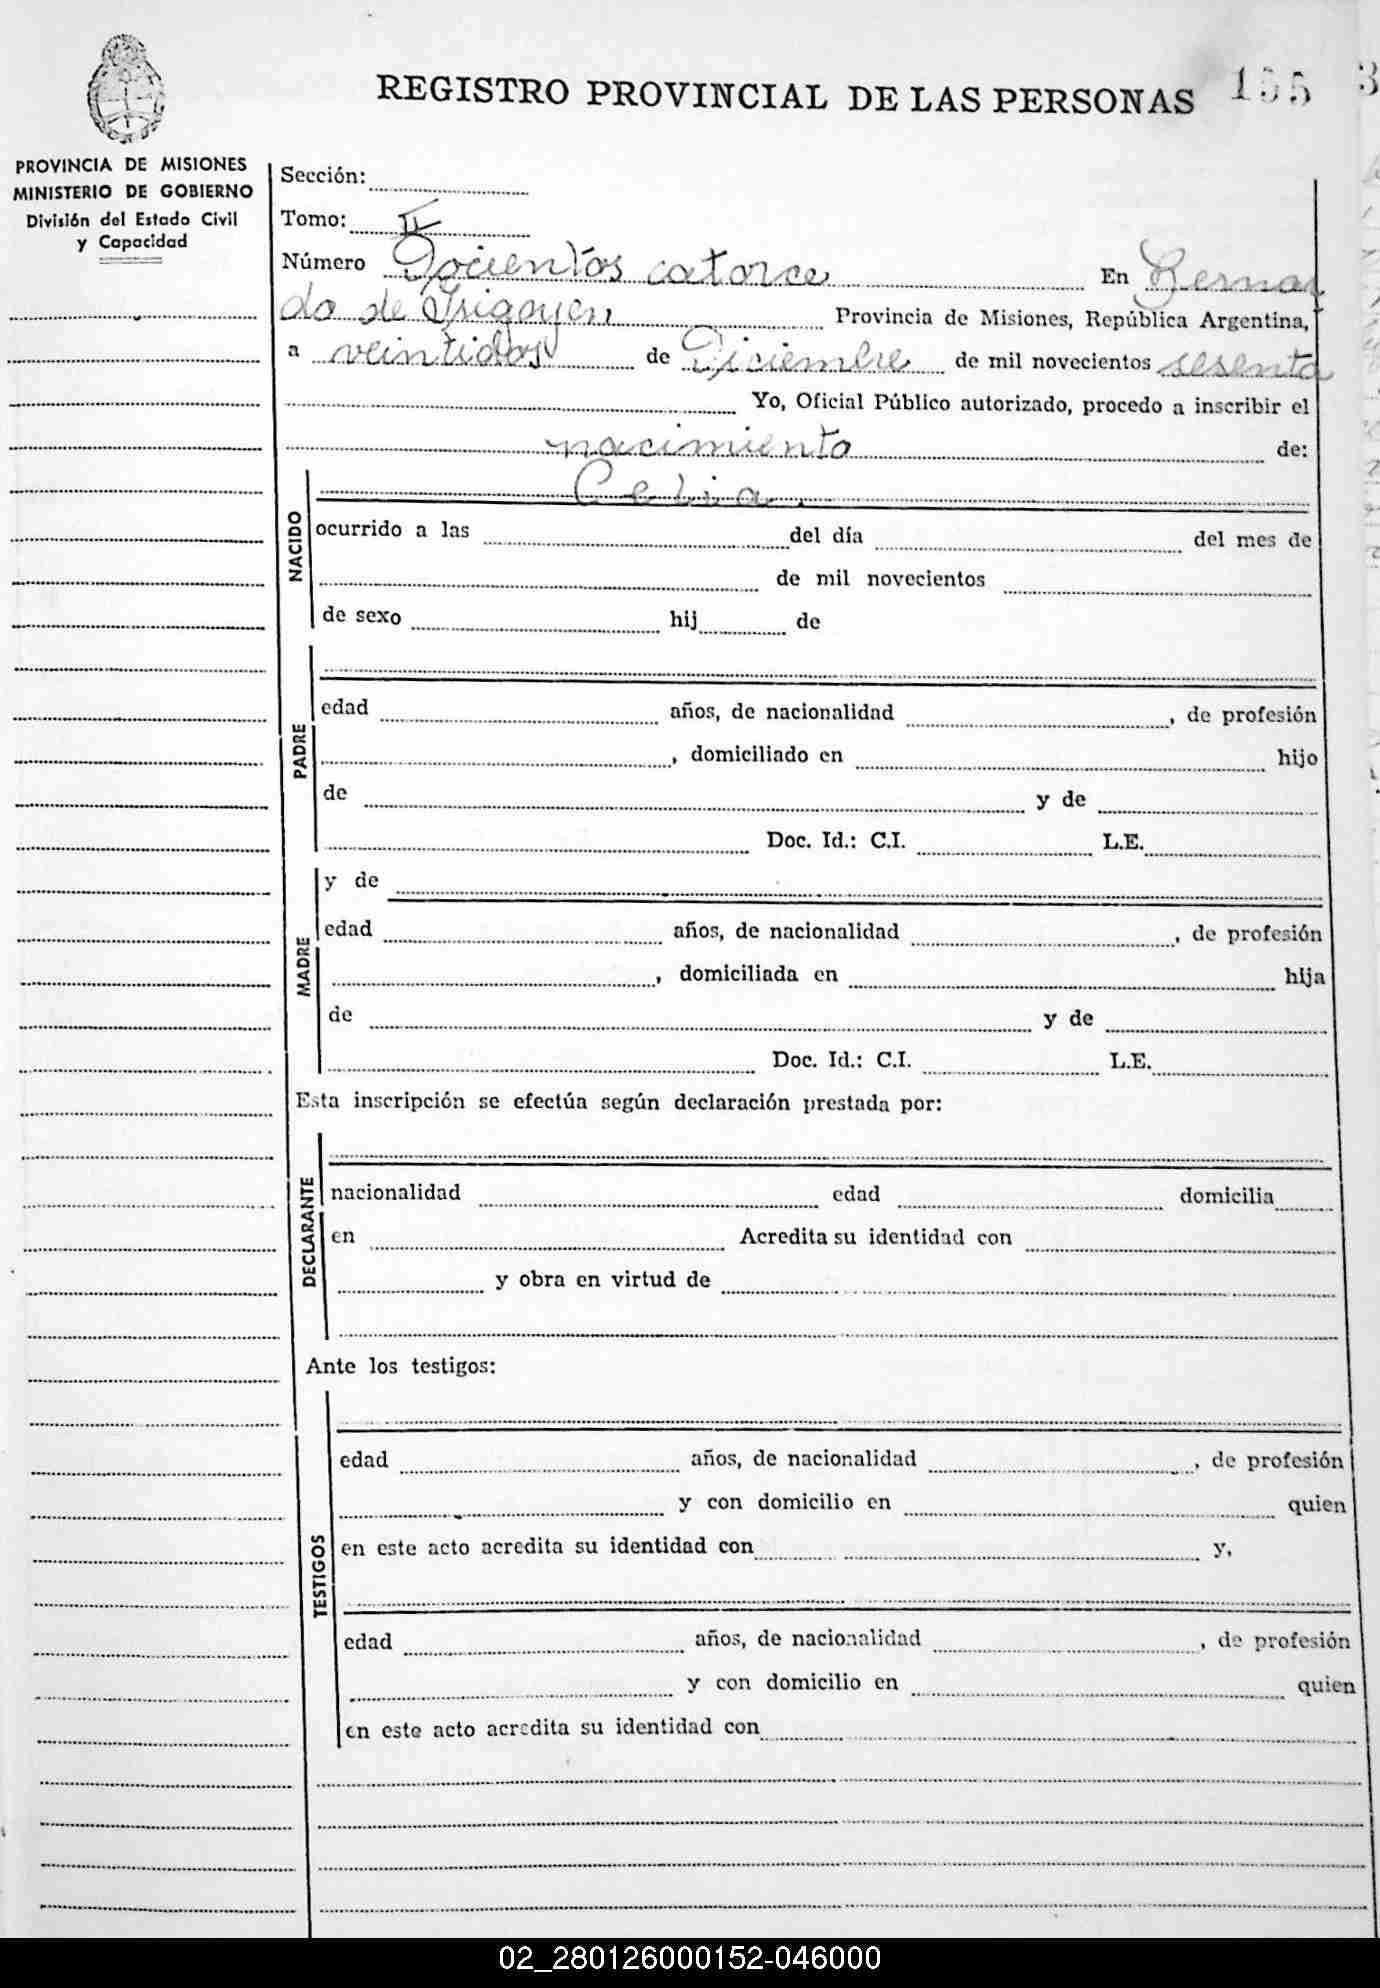 REGISTRO PROVINCIAL DE LAS PERSONAS 155
PROVINCIA DE MISIONES
MINISTERIO DE GOBIERNO
División del Estado Civil
y Capacidad
Sección:
Tomo: II
Número Docientos catorce En Bernar
do de Irigoyen Provincia de Misiones, República Argentina,
a veintidos de Diciembre de mil novecientos sesenta
Yo, Oficial Público autorizado, procedo a inscribir el
nacimiento de:
Celia
NACIDO
ocurrido a las del día del mes de
de mil novecientos
de sexo hij de
PADRE
edad años, de nacionalidad , de profesión
, domiciliado en hijo
de y de
Doc. Id.: C.I. L.E.
MADRE
y de
edad años, de nacionalidad , de profesión
, domiciliada en hija
de y de
Doc. Id.: C.I. L.E.
Esta inscripción se efectúa según declaración prestada por:
DECLARANTE
nacionalidad edad domicilia
en Acredita su identidad con
y obra en virtud de
Ante los testigos:
TESTIGOS
edad años, de nacionalidad , de profesión
y con domicilio en quien
en este acto acredita su identidad con y,
edad años, de nacionalidad , de profesión
y con domicilio en quien
en este acto acredita su identidad con
02_280126000152-046000